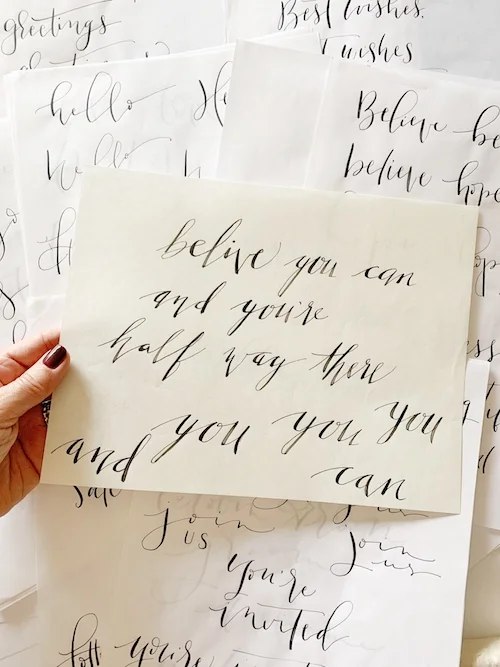 greetings
Best wishes.
wishes
hello
hello
Believe be
believe hope
belive you can
and you're
half way there
you you you
and can
Sale
join us
join us
you're
invited
you're